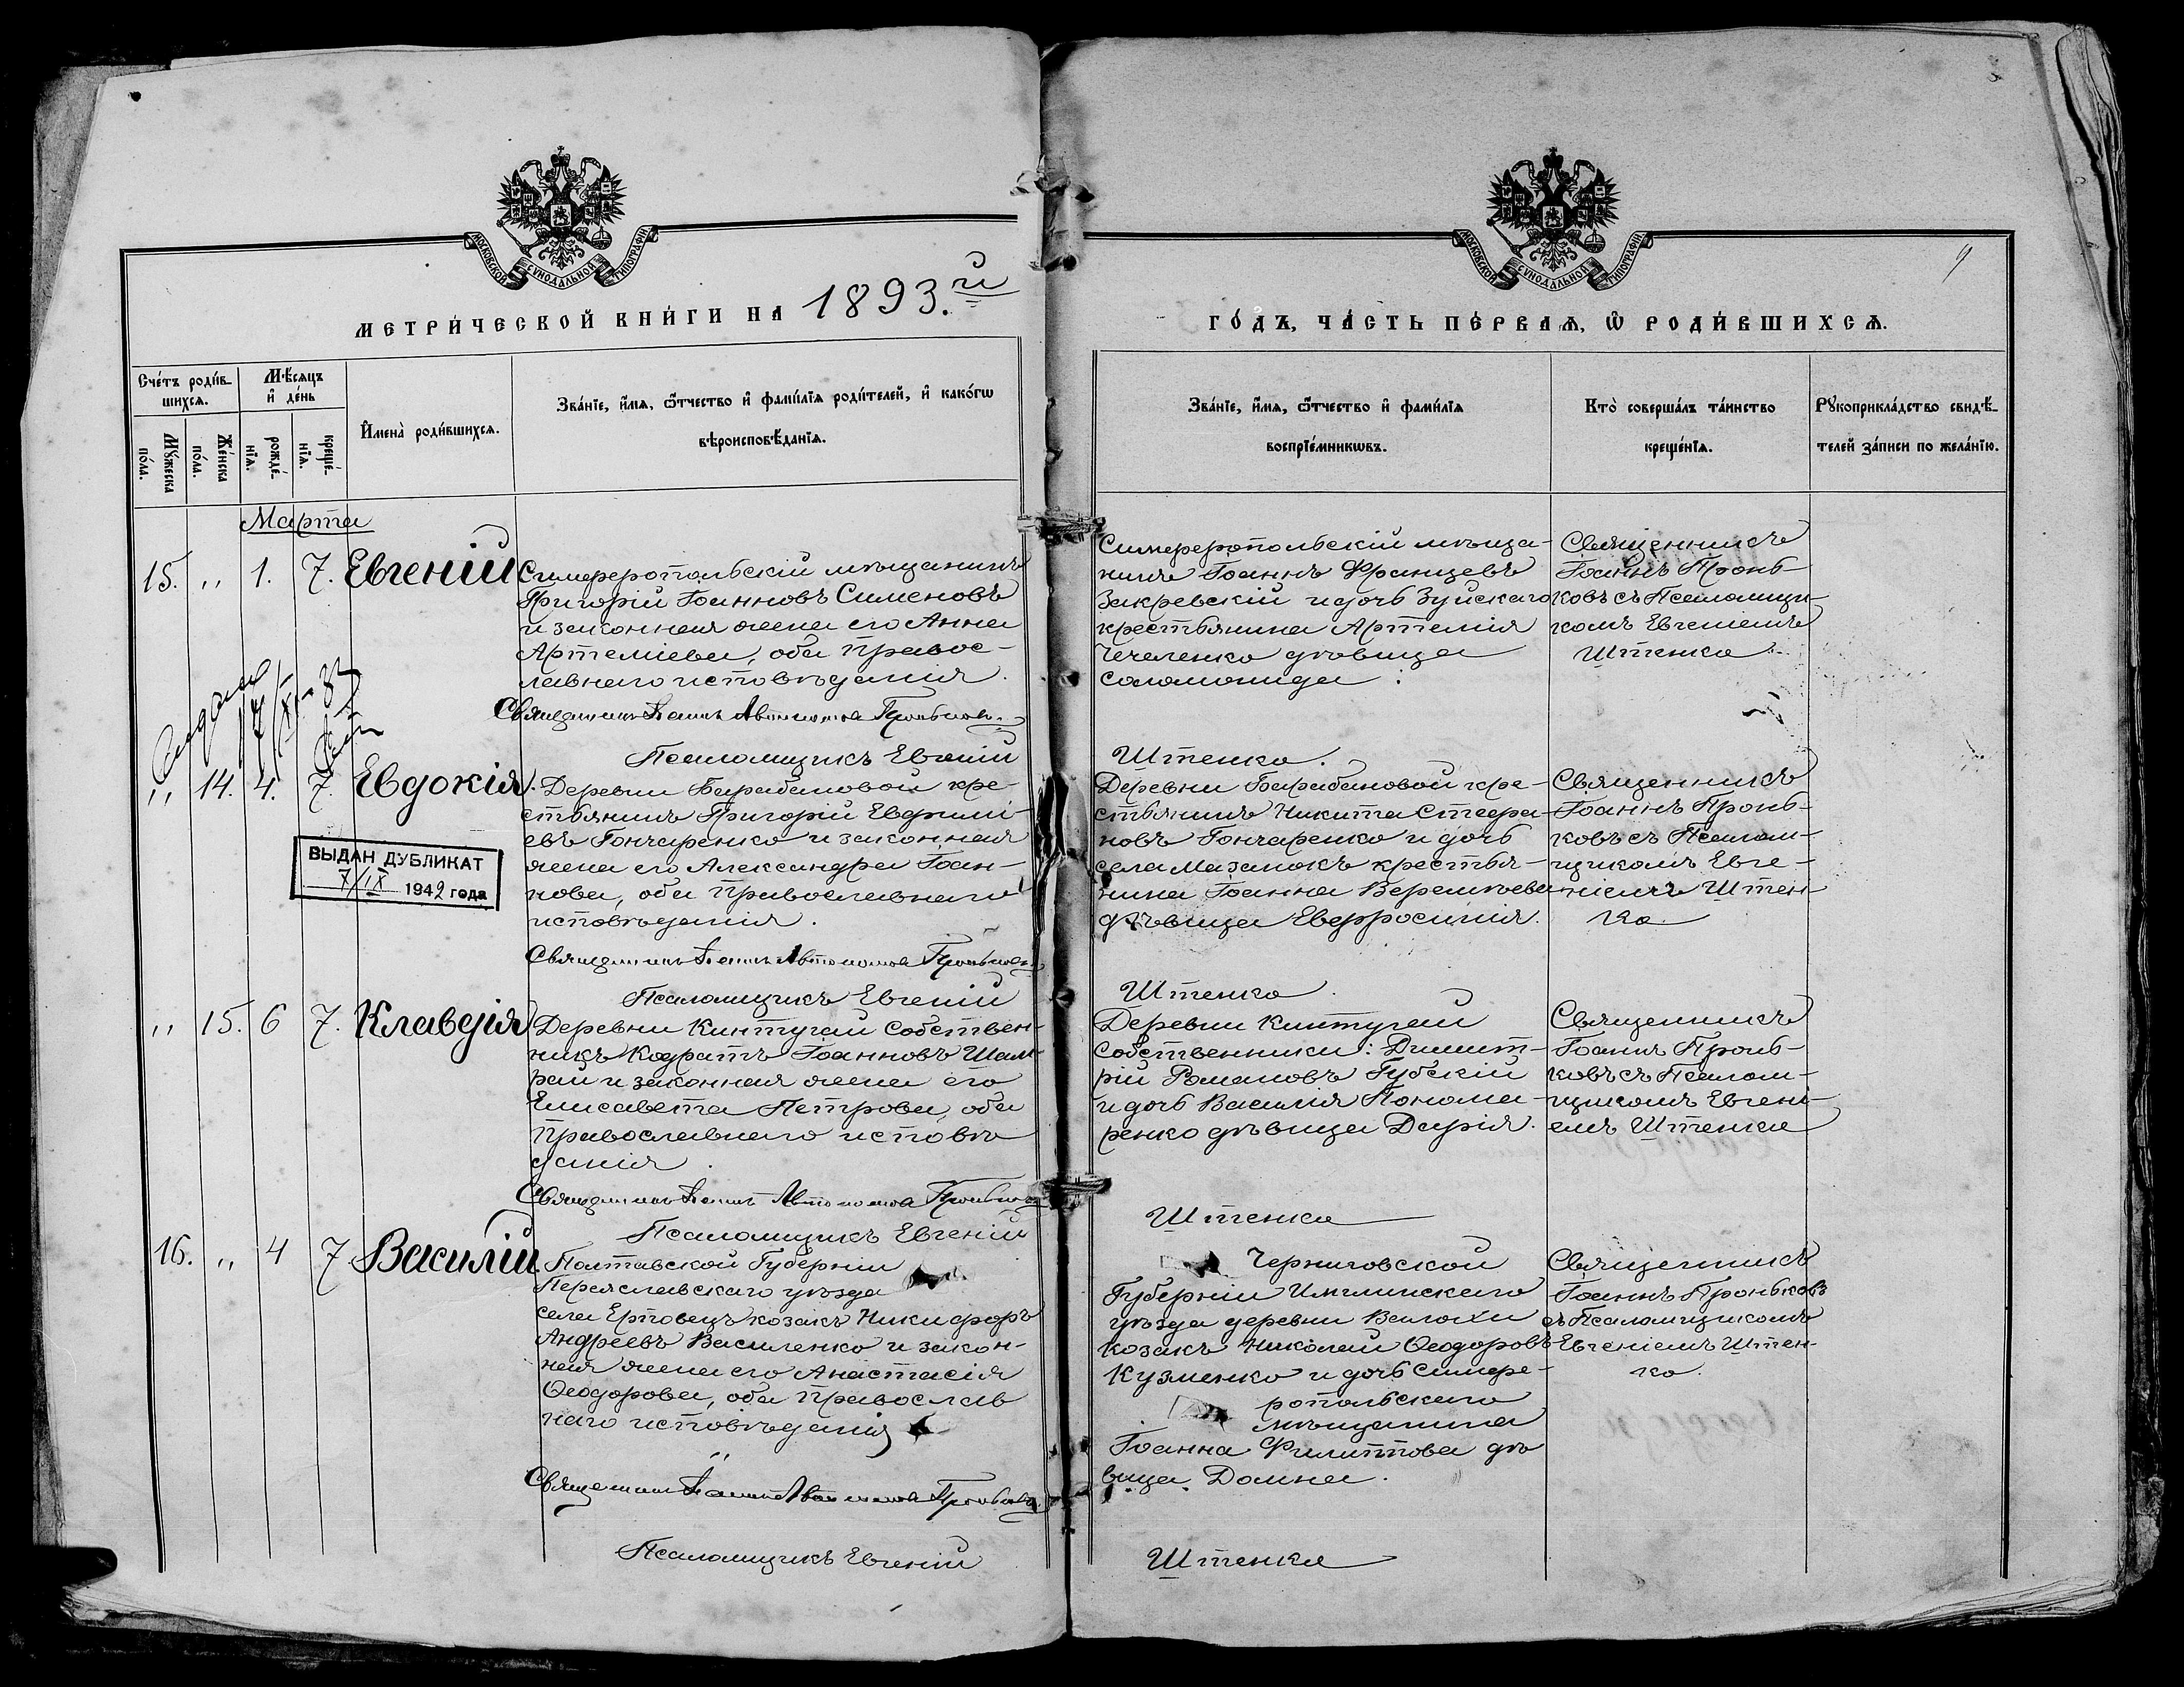 МОСКОВСКОЙ СУНОДАЛЬНОЙ ТИПОГРАФІИ
МЕТРИ́ЧЕСКОЙ КНИ́ГИ НА 1893.й
Сче́тъ роди́в-
шихсѧ.
Мѣ́сѧцъ
и҆ де́нь
Мꙋ́жеска
по́ла.
Же́нска
по́ла.
рожде́-
нїѧ.
креще́-
нїѧ.
И҆мена̀ роди́вшихсѧ.
Зва́нїе, и҆́мѧ, ѻ҆́тчество и҆ фами́лїѧ роди́телей, и҆ како́гѡ
вѣроисповѣ́данїѧ.
Марта
15. " 1. 7. Евгеній
Симферопольскій мѣщанинъ
Григорій Іоанновъ Сименовъ
и законная жена его Анна
Артеміева, оба Правос-
лавнаго исповѣданія.
Священникъ Іоаннъ Автономовъ Проньковъ
Псаломщикъ Евгеній
" 14. 4. 7. Евдокія.
Деревни Барабановой кре-
стьянинъ Григорій Евфимі-
евъ Гончаренко и законная
жена его Александра Іоан-
нова, оба Православнаго
исповѣданія.
ВЫДАН ДУБЛИКАТ
7/IX 1942 года
Священникъ Іоаннъ Автономовъ Проньковъ
Псаломщикъ Евгеній
" 15. 6 7. Клавдія
Деревни Кинтугай собствен-
никъ Кодратъ Іоанновъ Шам-
рай и законная жена его
Елисавета Петрова, оба
Православнаго исповѣ
данія.
Священникъ Іоаннъ Автономовъ Проньковъ
Псаломщикъ Евгеній
16. " 4 7 Василій
Полтавской Губерніи
Переяславскаго уѣзда
села Ерповецъ козакъ Никифоръ
Андреевъ Василенко и закон-
ная жена его Анастасія
Ѳеодорова, оба Православ
наго исповѣданія
Священникъ Іоаннъ Автономовъ Проньковъ
Псаломщикъ Евгеній
МОСКОВСКОЙ СУНОДАЛЬНОЙ ТИПОГРАФІИ
9
ГО́ДЪ, ЧА́СТЬ ПЕ́РВАѦ, Ѡ҆ РОДИ́ВШИХСѦ.
Зва́нїе, и҆́мѧ, ѻ҆́тчество и҆ фами́лїѧ
воспрїе́мникѡвъ.
Кто̀ соверша́лъ та́инство
креще́нїѧ.
Рꙋкоприкла́дство свидѣ́-
телей за́писи по жела́нїю.
Симферопольскій мѣща-
нинъ Іоаннъ Францевъ
Закревскій и дочь Зуйскаго
крестьянина Артемія
Чечеленко дѣвица
Соломонида.
Священникъ
Іоаннъ Пронь-
ковъ съ Псаломщи-
комъ Евгеніемъ
Штенко
Штенко.
Деревни Барабановой кре-
стьянинъ Никита Стефа-
новъ Гончаренко и дочь
села Мазанокъ крестья-
нина Іоанна Веремѣева
дѣвица Евфросинія.
Священникъ
Іоаннъ Пронь-
ковъ съ Псалом-
щикомъ Евге-
ніемъ Штен-
ко
Штенко.
Деревни Кинтугай
собственники: Димит-
рій Романовъ Губскій
и дочь Василія Понома-
ренко дѣвица Дарія.
Священникъ
Іоаннъ Пронь-
ковъ съ Псалом-
щикомъ Евгені-
емъ Штенко
Штенко
Черниговской
Губерніи Имглинскаго
уѣзда деревни
козакъ Николай Ѳеодоровъ
Кузменко и дочь Симфе-
ропольскаго
мѣщанина
Іоанна Филиппова дѣ
вица Домна.
Священникъ
Іоаннъ Проньковъ
съ Псаломщикомъ
Евгеніемъ Штен-
ко.
Штенко